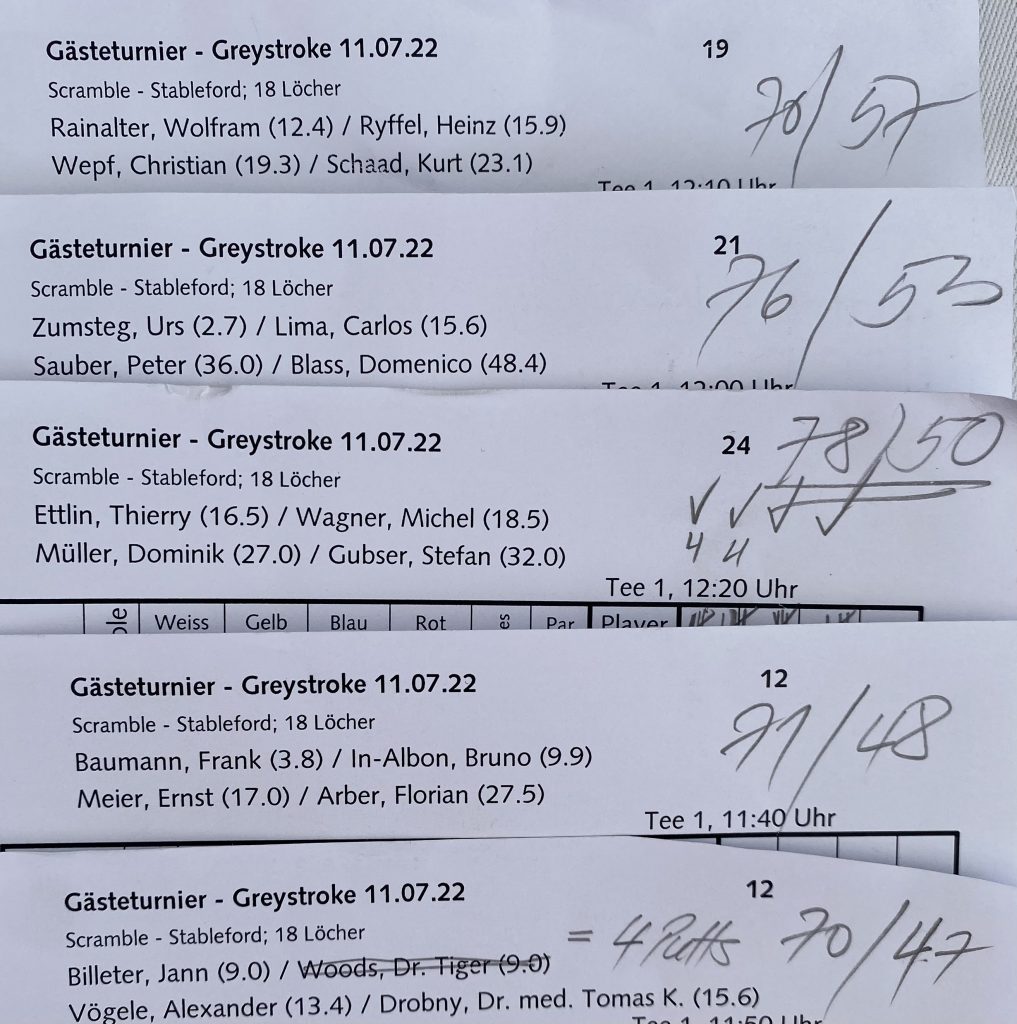 Gästeturnier - Greystroke 11.07.22 19
Scramble - Stableford; 18 Löcher 70/57
Rainalter, Wolfram (12.4) / Ryffel, Heinz (15.9)
Wepf, Christian (19.3) / Schaad, Kurt (23.1)
Tee 1, 12:10 Uhr
Gästeturnier - Greystroke 11.07.22 21
Scramble - Stableford; 18 Löcher 76/53
Zumsteg, Urs (2.7) / Lima, Carlos (15.6)
Sauber, Peter (36.0) / Blass, Domenico (48.4)
Tee 1, 12:00 Uhr
Gästeturnier - Greystroke 11.07.22 24 78/50
Scramble - Stableford; 18 Löcher
Ettlin, Thierry (16.5) / Wagner, Michel (18.5)
Müller, Dominik (27.0) / Gubser, Stefan (32.0) 4 4
Tee 1, 12:20 Uhr
Weiss Gelb Blau Rot Par Player
Gästeturnier - Greystroke 11.07.22 12
Scramble - Stableford; 18 Löcher 71/48
Baumann, Frank (3.8) / In-Albon, Bruno (9.9)
Meier, Ernst (17.0) / Arber, Florian (27.5)
Tee 1, 11:40 Uhr
Gästeturnier - Greystroke 11.07.22 12
Scramble - Stableford; 18 Löcher = 4 Putts 70/47
Billeter, Jann (9.0) / Woods, Dr. Tiger (9.0)
Vögele, Alexander (13.4) / Drobny, Dr. med. Tomas K. (15.6)
Tee 1, 11:50 Uhr